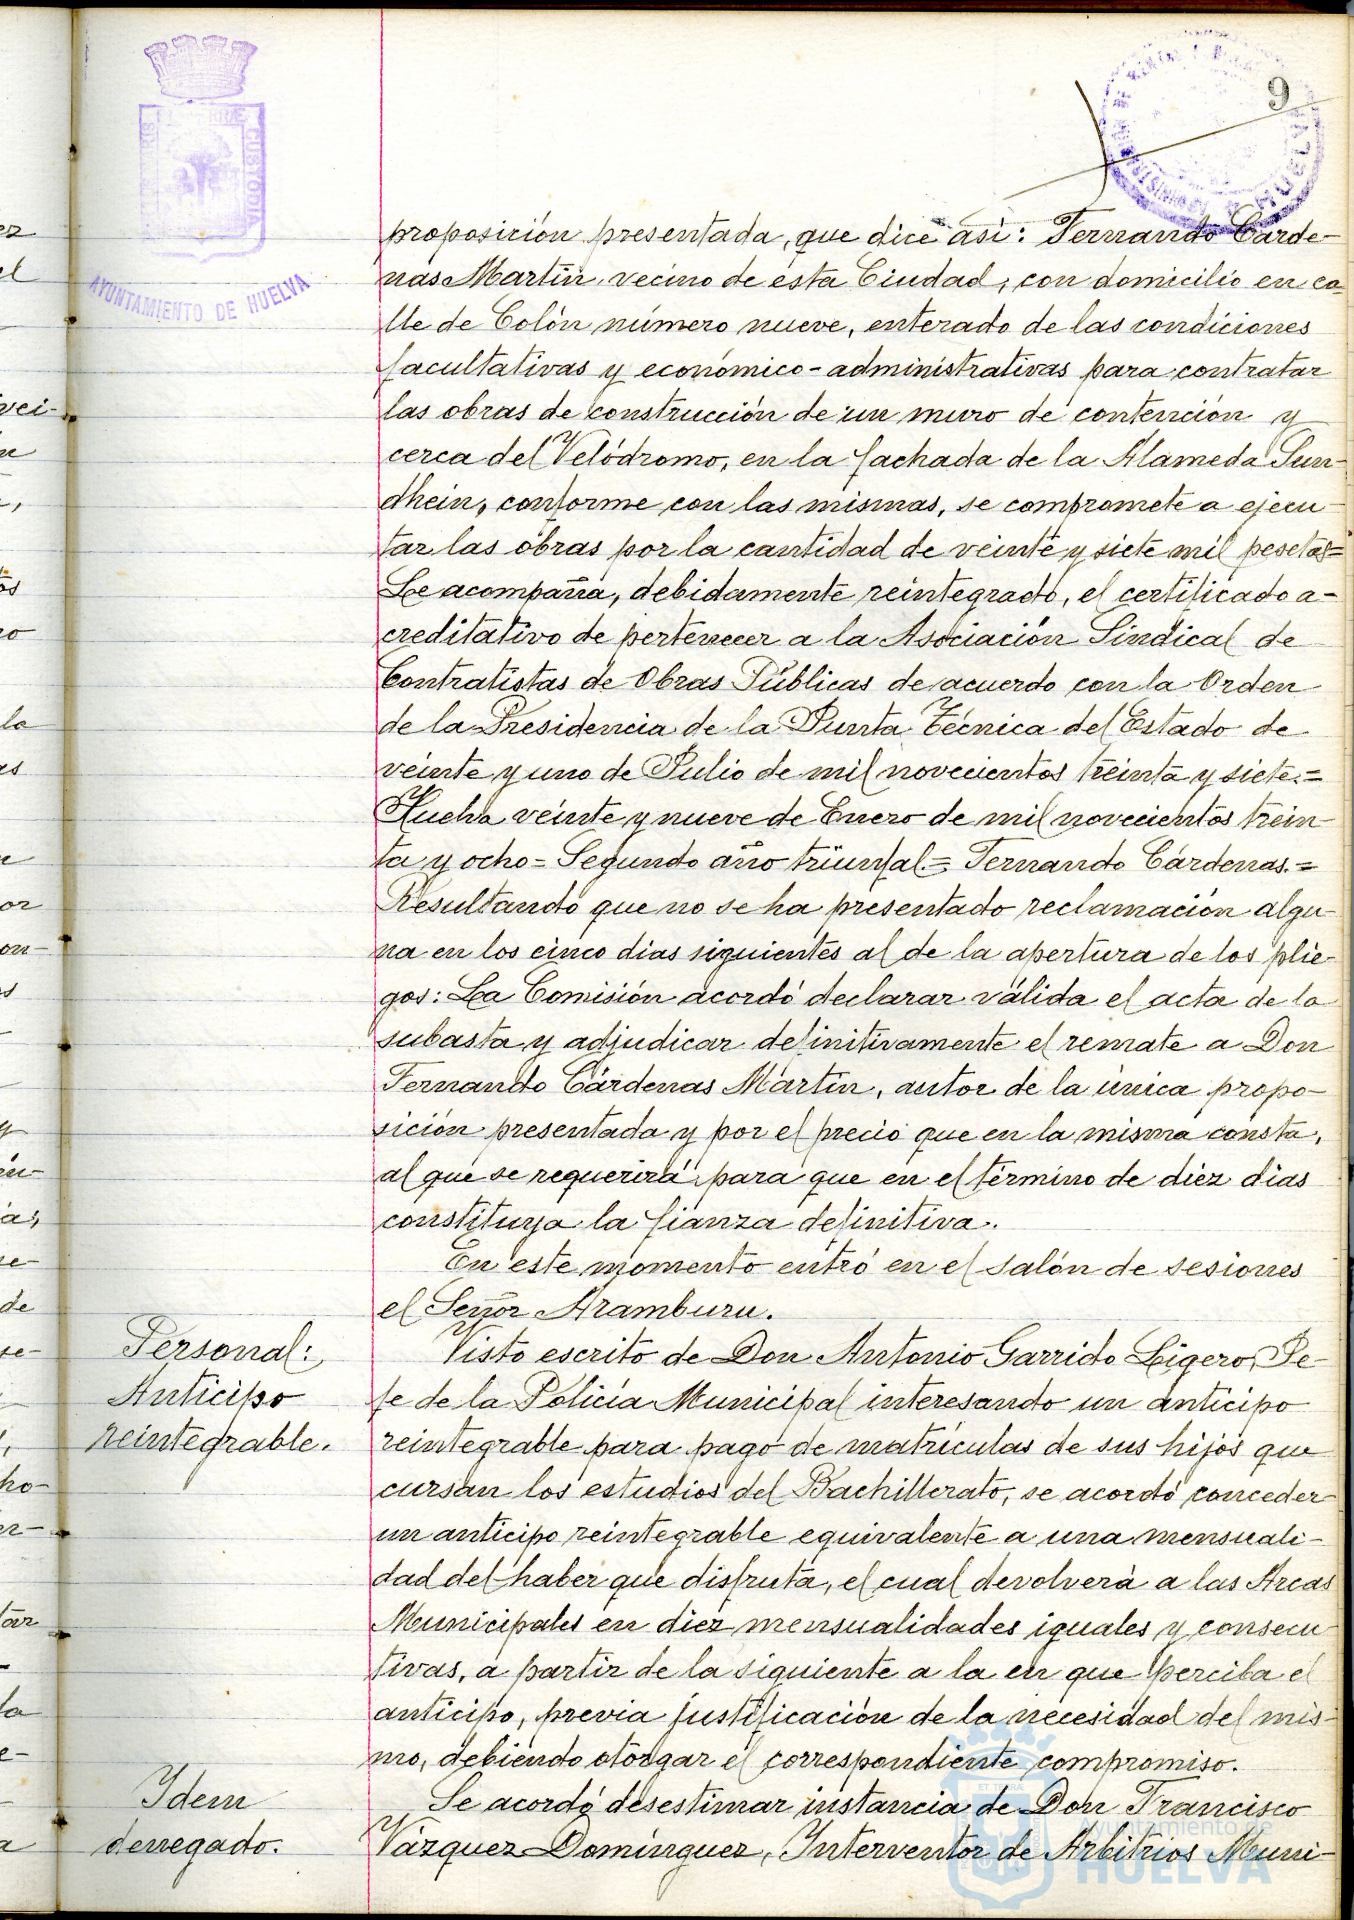 9
AYUNTAMIENTO DE HUELVA
proposición presentada, que dice asi: Fernando Carde-
nas Martin, vecino de esta Ciudad, con domicilio en ca-
lle de Colón número nueve, enterado de las condiciones
facultativas y económico-administrativas para contratar
las obras de construcción de un muro de contención y
cerca del Velódromo, en la fachada de la Alameda Sun-
dhein, conforme con las mismas, se compromete a ejecu-
tar las obras por la cantidad de veinte y siete mil pesetas=
Se acompaña, debidamente reintegrado, el certificado a-
creditativo de pertenecer a la Asociación Sindical de
Contratistas de Obras Públicas de acuerdo con la Orden
de la Presidencia de la Junta Técnica del Estado de
veinte y uno de Julio de mil novecientos treinta y siete.=
Huelva veinte y nueve de Enero de mil novecientos trein-
ta y ocho= Segundo año triunfal.= Fernando Cárdenas.=
Resultando que no se ha presentado reclamación algu-
na en los cinco dias siguientes al de la apertura de los plie-
gos: La Comisión acordó declarar válida el acta de la
subasta y adjudicar definitivamente el remate a Don
Fernando Cárdenas Martín, autor de la única propo-
sición presentada y por el precio que en la misma consta,
al que se requerirá para que en el término de diez dias
constituya la fianza definitiva.
En este momento entró en el salón de sesiones
el Señor Aramburu.
Personal:
Anticipo
reintegrable.
Visto escrito de Don Antonio Garrido Ligero, Je-
fe de la Policía Municipal interesando un anticipo
reintegrable para pago de matrículas de sus hijos que
cursan los estudios del Bachillerato, se acordó conceder
un anticipo reintegrable equivalente a una mensuali-
dad del haber que disfruta, el cual devolverá a las Arcas
Municipales en diez mensualidades iguales y consecu-
tivas, a partir de la siguiente a la en que perciba el
anticipo, previa justificación de la necesidad del mis-
mo, debiendo otorgar el correspondiente compromiso.
Idem
denegado.
Se acordó desestimar instancia de Don Francisco
Vázquez Domínguez, Interventor de Arbitrios Muni-
Ayuntamiento de
HUELVA